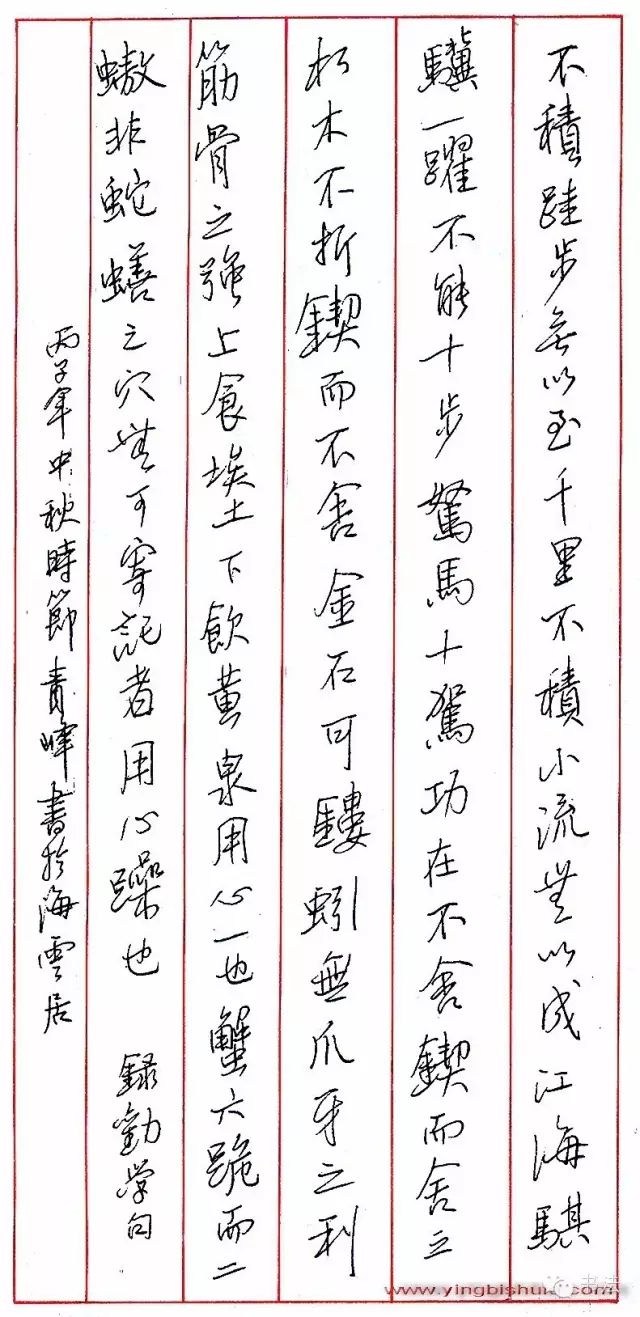 不積跬步無以至千里不積小流無以成江海騏
驥一躍不能十步駑馬十駕功在不舍鍥而舍之
朽木不折鍥而不舍金石可鏤蚓無爪牙之利
筋骨之強上食埃土下飲黃泉用心一也蟹六跪而二
螯非蛇蟮之穴無可寄託者用心躁也 錄勸学句
丙子年中秋時節青峰書於海雲居
www.yingbishu
书法